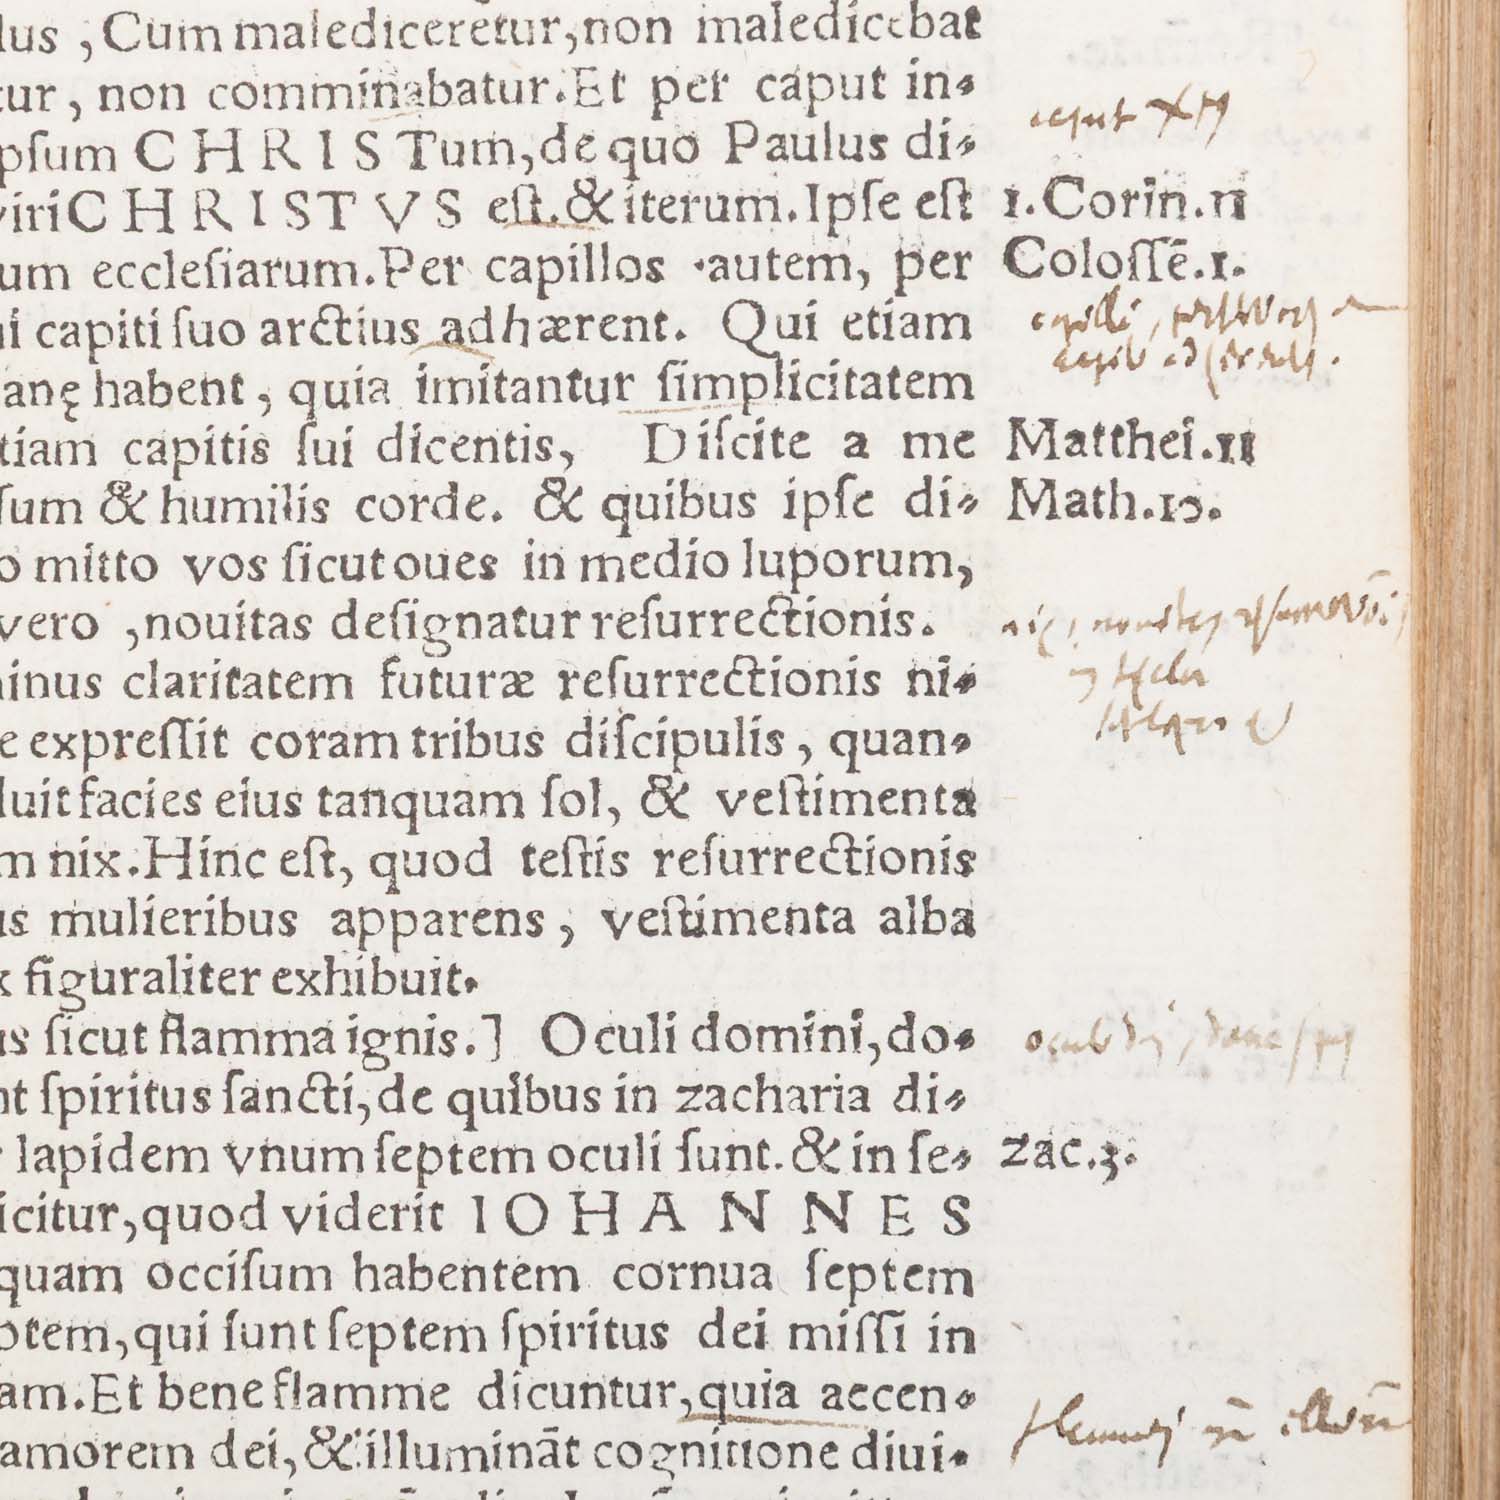 lus , Cum malediceretur, non maledicebat
tur, non comminabatur. Et per caput in⸗
caput
ipsum CHRISTum, de quo Paulus di⸗
viri CHRISTVS eſt. & iterum. Ipſe eſt
1. Corin. 11
um eccleſiarum. Per capillos autem, per
Coloſſē. 1.
ui capiti ſuo arctius adhærent. Qui etiam
capilli,
anę habent, quia imitantur ſimplicitatem
tiam capitis ſui dicentis, Diſcite a me
Matthei. 11
ſum & humilis corde. & quibus ipſe di⸗
Math. 10.
o mitto vos ſicut oues in medio luporum,
vero , nouitas deſignatur reſurrectionis.
minus claritatem futuræ reſurrectionis ni⸗
e expreſſit coram tribus diſcipulis, quan⸗
luit facies eius tanquam ſol, & veſtimenta
m nix. Hinc eſt, quod teſtis reſurrectionis
us mulieribus apparens, veſtimenta alba
x figuraliter exhibuit.
us ſicut flamma ignis.] Oculi domini, do⸗
nt ſpiritus ſancti, de quibus in zacharia di⸗
lapidem vnum ſeptem oculi ſunt. & in ſe⸗
zac. 3.
icitur, quod viderit IOHANNES
quam occiſum habentem cornua ſeptem
ptem, qui ſunt ſeptem ſpiritus dei miſſi in
am. Et bene flamme dicuntur, quia accen⸗
amorem dei, & illumināt cognitione diui⸗